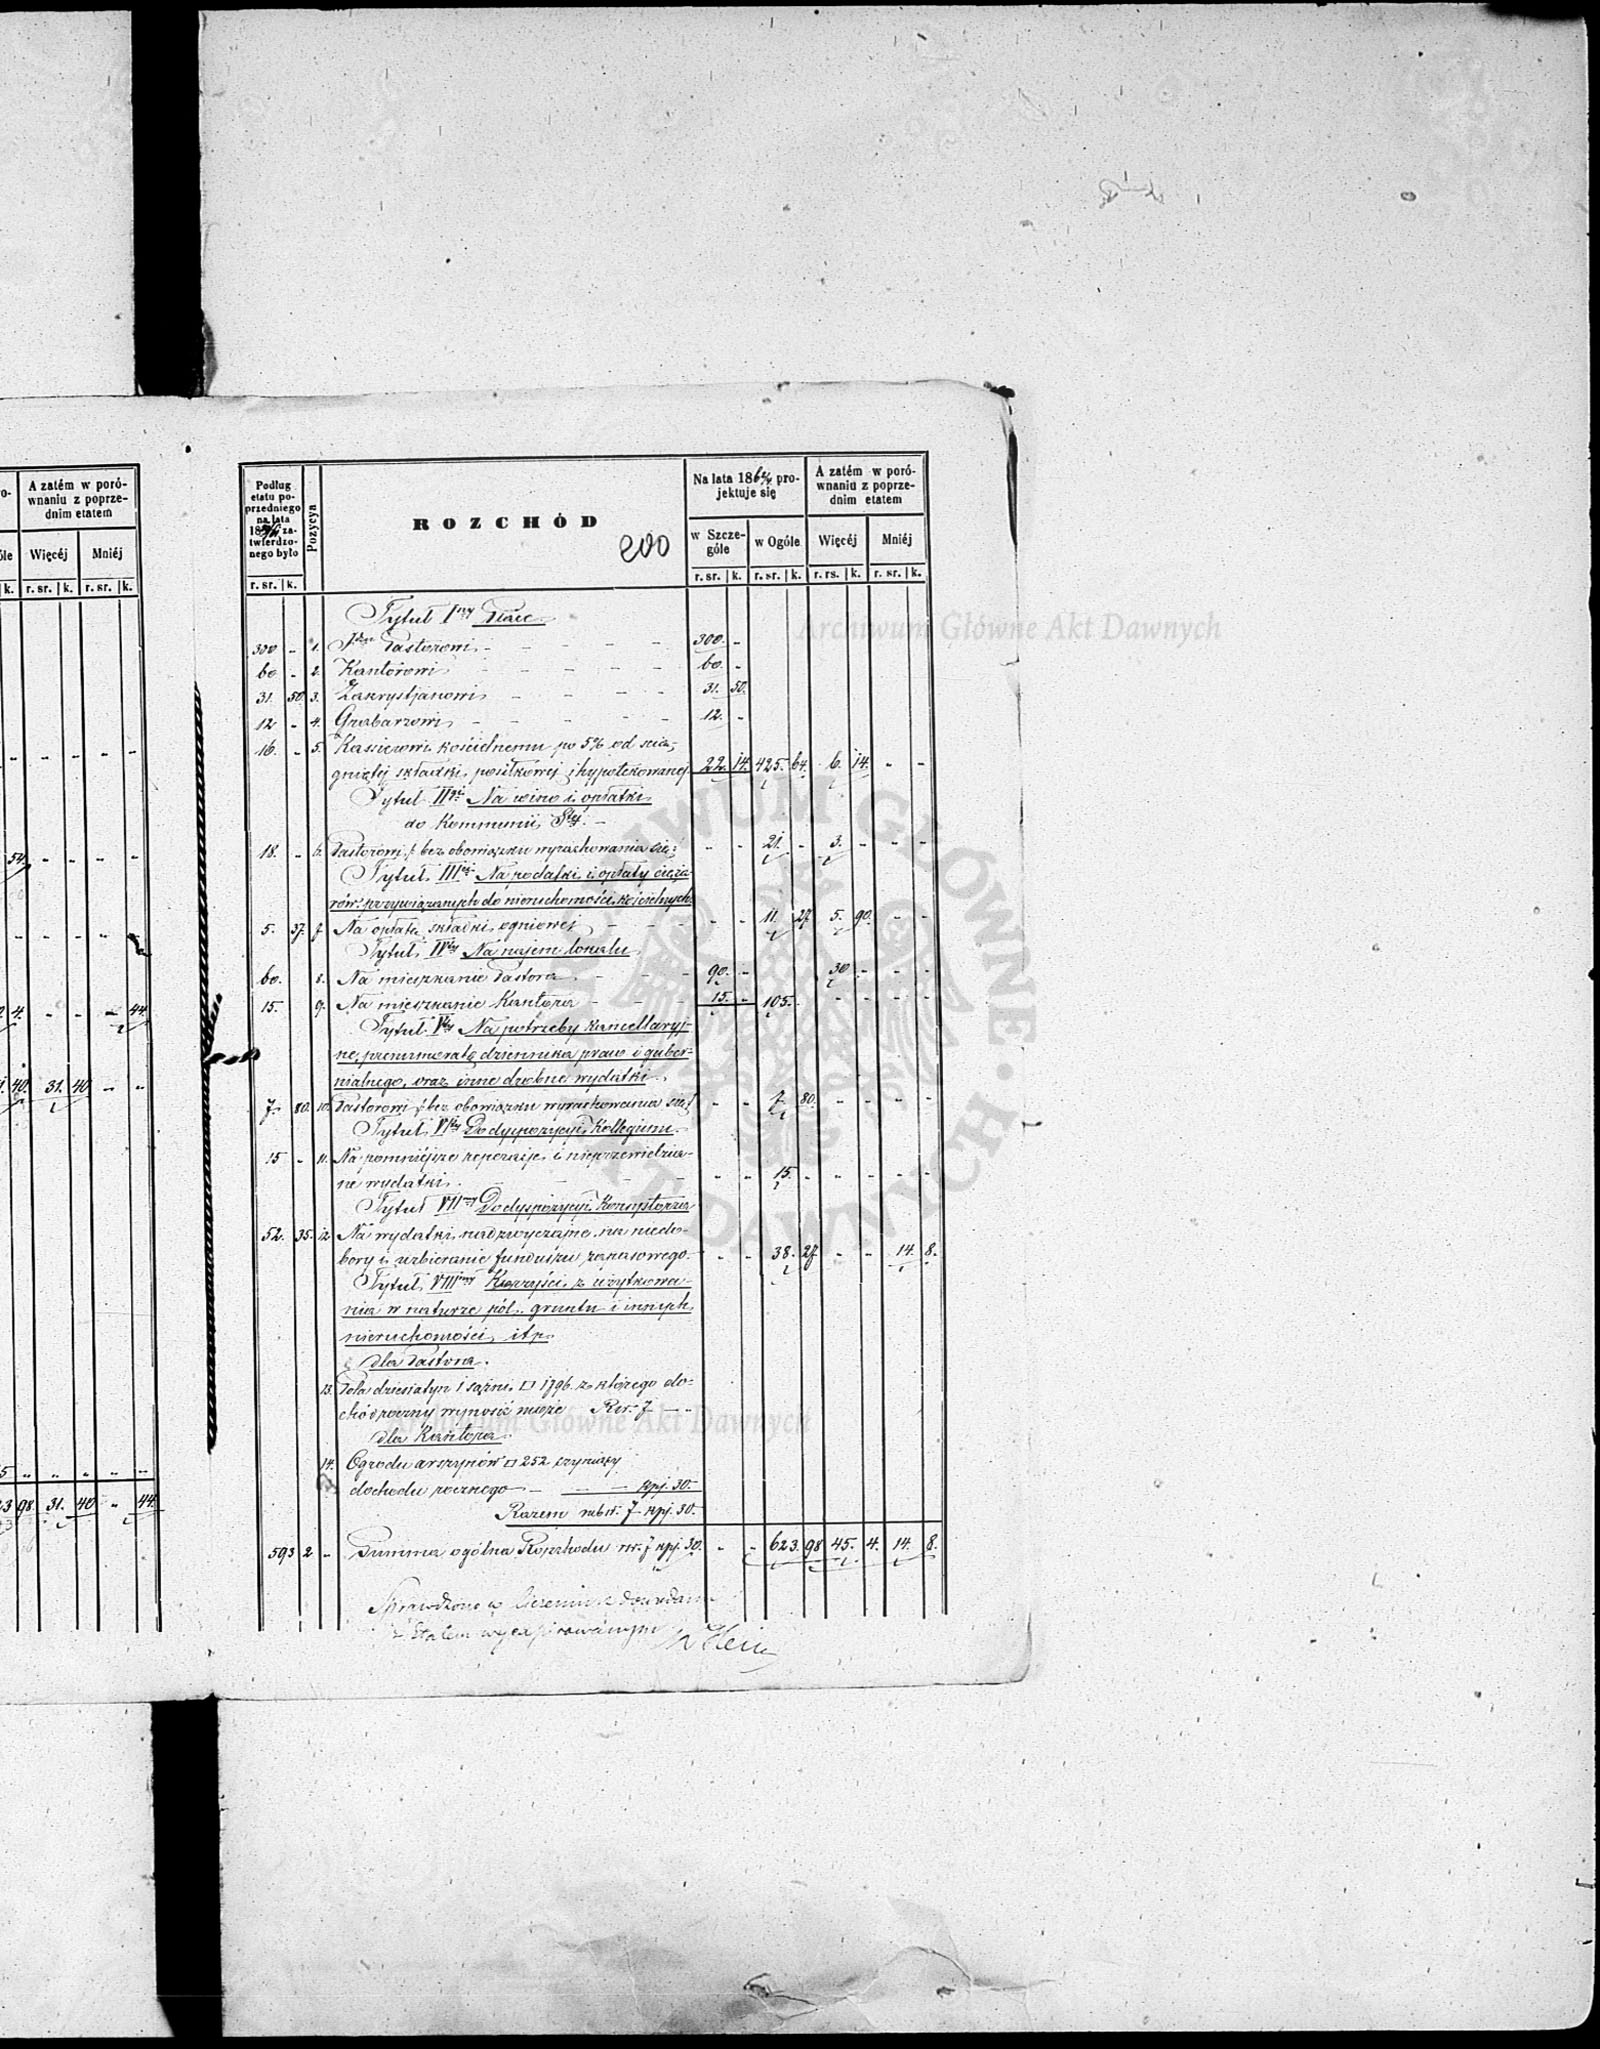 A zatém w poró-
wnaniu z poprze-
dnim etatem
Więcéj Mniéj
k. r. sr. k. r. sr. k.
54.
4. 44.
40. 31. 40
98. 31. 40 44.
Podług
etatu po-
przedniego
na lata
za-
twierdzo-
nego było
r. sr. k.
Pozycya
ROZCHÓD
200
Na lata 186 pro-
jektuje się
w Szcze-
góle
w Ogóle
r. sr. k. r. sr. k.
A zatém w poró-
wnaniu z poprze-
dnim etatem
Więcéj Mniéj
r. rs. k. r. sr. k.
Tytuł Iny Płace
300 - 1. Pastorowi - 300. -
60 - 2. Kantorowi - 60. -
31. 50. 3. Zakrystjanowi - 31. 50.
12 - 4. Grabarzowi - 12. -
16. - 5. Kassierowi kościelnemu po 5% od ścią-
gniętej składki posiłkowej i hypotekowanej 22. 14. 425. 64. 6. 14. - -
Tytuł IIgi Na wino i opłatki
do Kommunii Stej. -
18. - 6. Pastorowi bez obowiązku wyrachowania się - - 21. - 3. - - -
Tytuł IIIci Na podatki i opłaty cięża-
rów przywiązanych do nieruchomości kościelnych
5. 37. 7. Na opłatę składki ogniowej - - - 11. 27 5. 90. - -
Tytuł IVty Na najem lokalu
60. 8. Na mieszkanie Pastora - 90. - 30 - - -
15. 9. Na mieszkanie Kantora - 15. - 105. - - - - -
Tytuł Vty Na potrzeby kancellaryj-
ne, prenumeratę dziennika praw i guber-
nialnego, oraz inne drobne wydatki.
7. 80. 10. Pastorowi bez obowiązku wyrachowania się - - 7. 80. - - - -
Tytuł VIty Do dyspozycyi Kollegium.
15 - 11. Na pomniejsze reperacije i nieprzewidzia-
ne wydatki. - - - 15. - - - - -
Tytuł VIImy Do dyspozycyi Konsystorza
52. 35. 12. Na wydatki nadzwyczajne na niedo-
bory i uzbieranie funduszu zapasowego. - - 38. 27 - - 14. 8.
Tytuł VIIImy Korzyści z użytkowa-
nia w naturze pól, gruntu i innych
nieruchomości, itp.
dla Pastora.
13. Pola dziesiatyn 1 sążni □ 1796. z którego do-
chód roczny wynosić może Rsr. 7 - -
dla Kantora.
14. Ogrodu arszynów □ 252 czyniący
dochodu rocznego - kpj. 30.
Razem rubsr. 7 kpj. 30.
593 2 - Summa ogólna Rozchodu rsr. 7 kpj. 30. - - 623. 98 45. 4. 14. 8.
Sprawdzono w liczeniu z dowodami
Etatem
Archiwum Główne Akt Dawnych
ARCHIWUM GŁÓWNE AKT DAWNYCH
Archiwum Główne Akt Dawnych